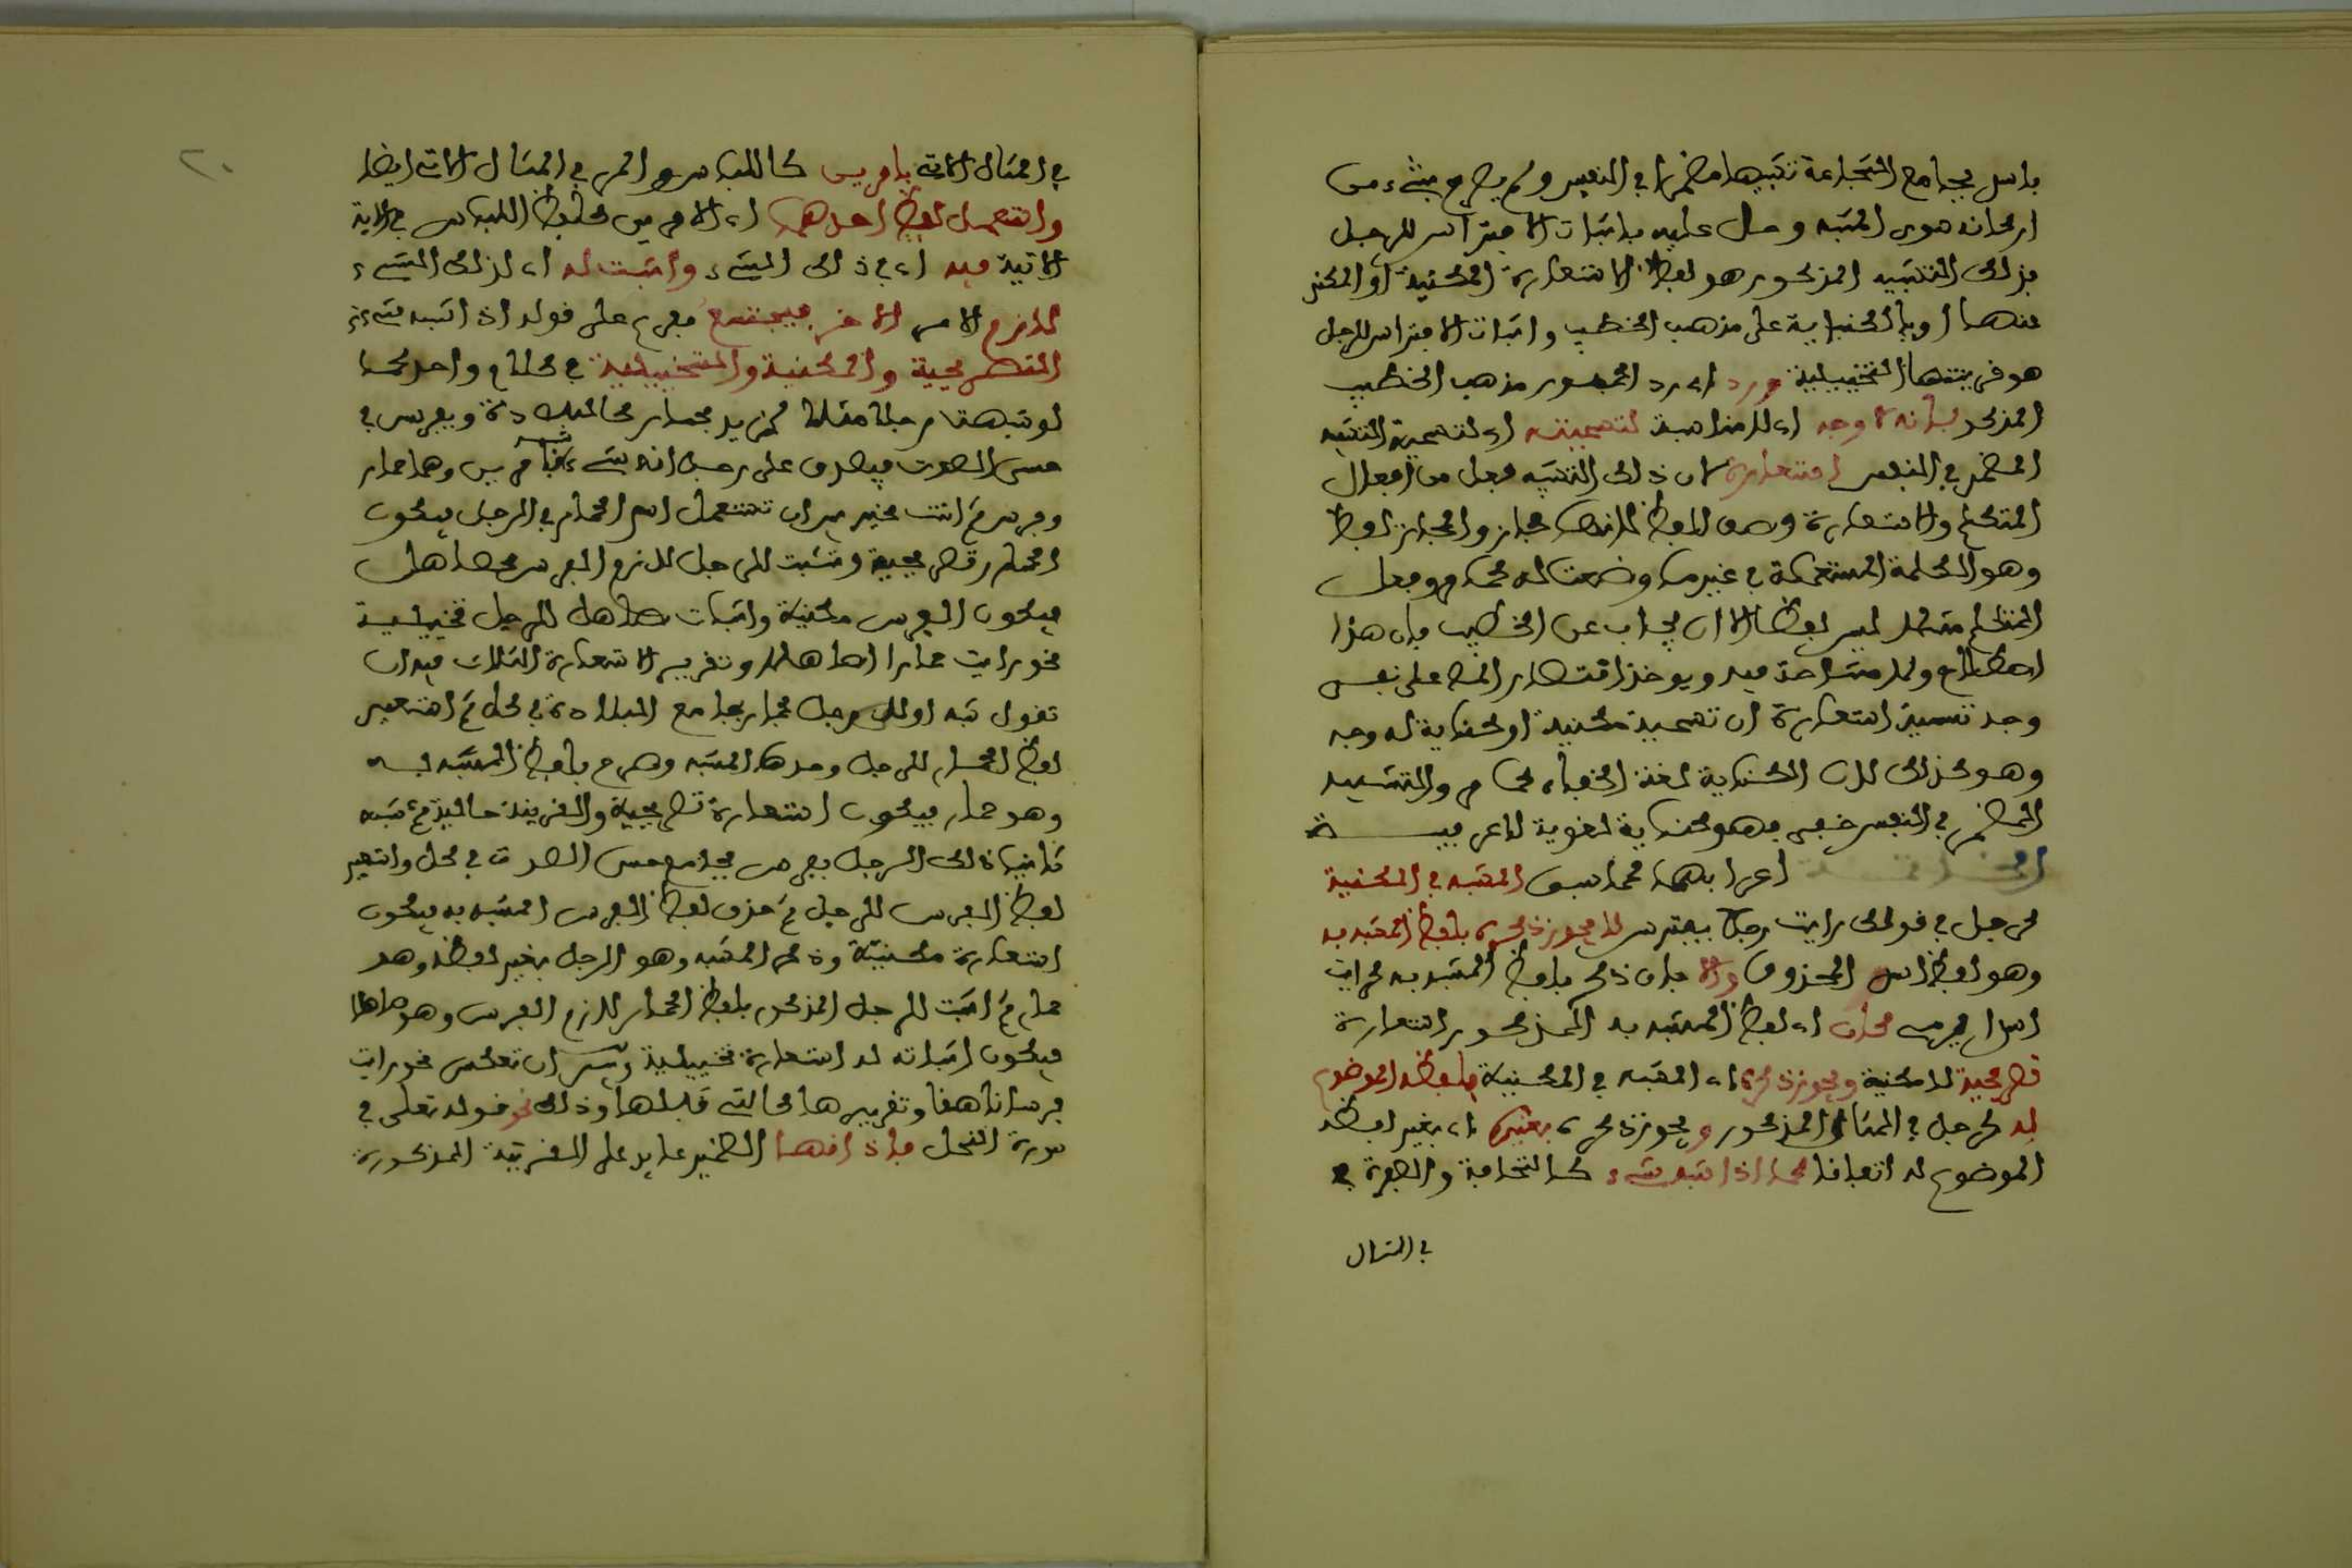 باسد بجامع الشجاعة تشبيها مضمرا في النفس ولم يصرح بشيء من
اركانه سوى المشبه ودل عليه باثبات الافتراس للرجل
فذلك التشبيه المذكور هو لفظ الاستعارة المكنية او المكنى
عنها او بالكناية على مذهب الخطيب واثبات الافتراس للرجل
هو قرينتها التخييلية ورد اي رد الجمهور مذهب الخطيب
المذكور بانه لا وجه اي لا مناسبة لتسميته اي لتسمية التشبيه
المضمر في النفس استعارة لان ذلك التشبيه فعل من افعال
المتكلم والاستعارة وصف للفظ لانها مجاز والمجاز لفظ
وهو الكلمة المستعملة في غير ما وضعت له كما مر وفعل
المتكلم مثلا ليس لفظا الا ان يجاب عن الخطيب بان هذا
اصطلاح ولا مشاحة فيه ويوخذ اقتصار المص على نفي
وجه تسمية استعارة ان تسمية مكنية او كناية له وجه
وهو كذلك لان الكناية لغة الخفاء كما مر والتشبيه
المضمر في النفس خفي فهو كناية لغوية لا عرفيــة
اعرابها كما سبق المشبه في المكنية
كرجل في قولك رايت رجلا يفترس لا يجوز ذكره بلفظ المشبه به
وهو لفظ اسد المحذوف والا بان ذكر بلفظ المشبه به كرايت
اسدا يرمي كان اي لفظ المشبه به المذكور استعارة
تصريحية لا مكنية ويجوز ذكره اي المشبه في المكنية بلفظه الموضوع
له كرجل في المثال المذكور ويجوز ذكره بغيره اي بغير لفظه
الموضوع له اتفاقا كما اذا شبه شيء كالنحافة والصفرة في
في المثال
٢٠
في المثال الاتي بامرين كاللباس والمر في المثال الاتي ايضا
واستعمل لفظ احدهما اي الامرين كلفظ اللباس في الاية
الاتية فيه اي في ذلك الشيء واثبت له اي لذلك الشيء
لازم الامر الاخر فيجتمع مفرع على قوله اذا شبه شيء
التصريحية والمكنية والتخييلية في كلام واحد كما
لو شبهت رجلا مثلا كزيد بحمار كالبلادة وبفرس في
حسن الصوت فيصدق على رجل انه شيء شبه بامرين وهما حمار
وفرس ثم انت مخير بين ان تستعمل اسم الحمار في الرجل فيكون
الحمار تصريحية وتثبت للرجل لازم الفرس كصاهل
فيكون الفرس مكنية واثبات صاهل للرجل تخييلية
نحو رايت حمارا صاهلا وتقرير الاستعارة الثلاث فيه ان
تقول شبه اولا رجل بحمار بجامع البلادة في كل ثم استعير
لفظ الحمار للرجل وحذف المشبه وصرح بلفظ المشبه بــه
وهو حمار فيكون استعارة تصريحية والقرينة حالية ثم شبه
ثانيا ذلك الرجل بفرس بجامع حسن الصوت في كل واستعير
لفظ الفرس للرجل ثم حذف لفظ الفرس المشبه به فيكون
استعارة مكنية وذكر المشبه وهو الرجل بغير لفظه وهو
حمار ثم اثبت للرجل المذكور بلفظ الحمار لازم الفرس وهو صاهلا
فيكون اثباته له استعارة تخييلية وبين ان تعكس نحو رايت
فرسا ناهقا وتقريرها كالتي قبلها وذلك نحو قوله تعلى في
سورة النحل فاذاقها الضمير عايد على القرية المذكورة